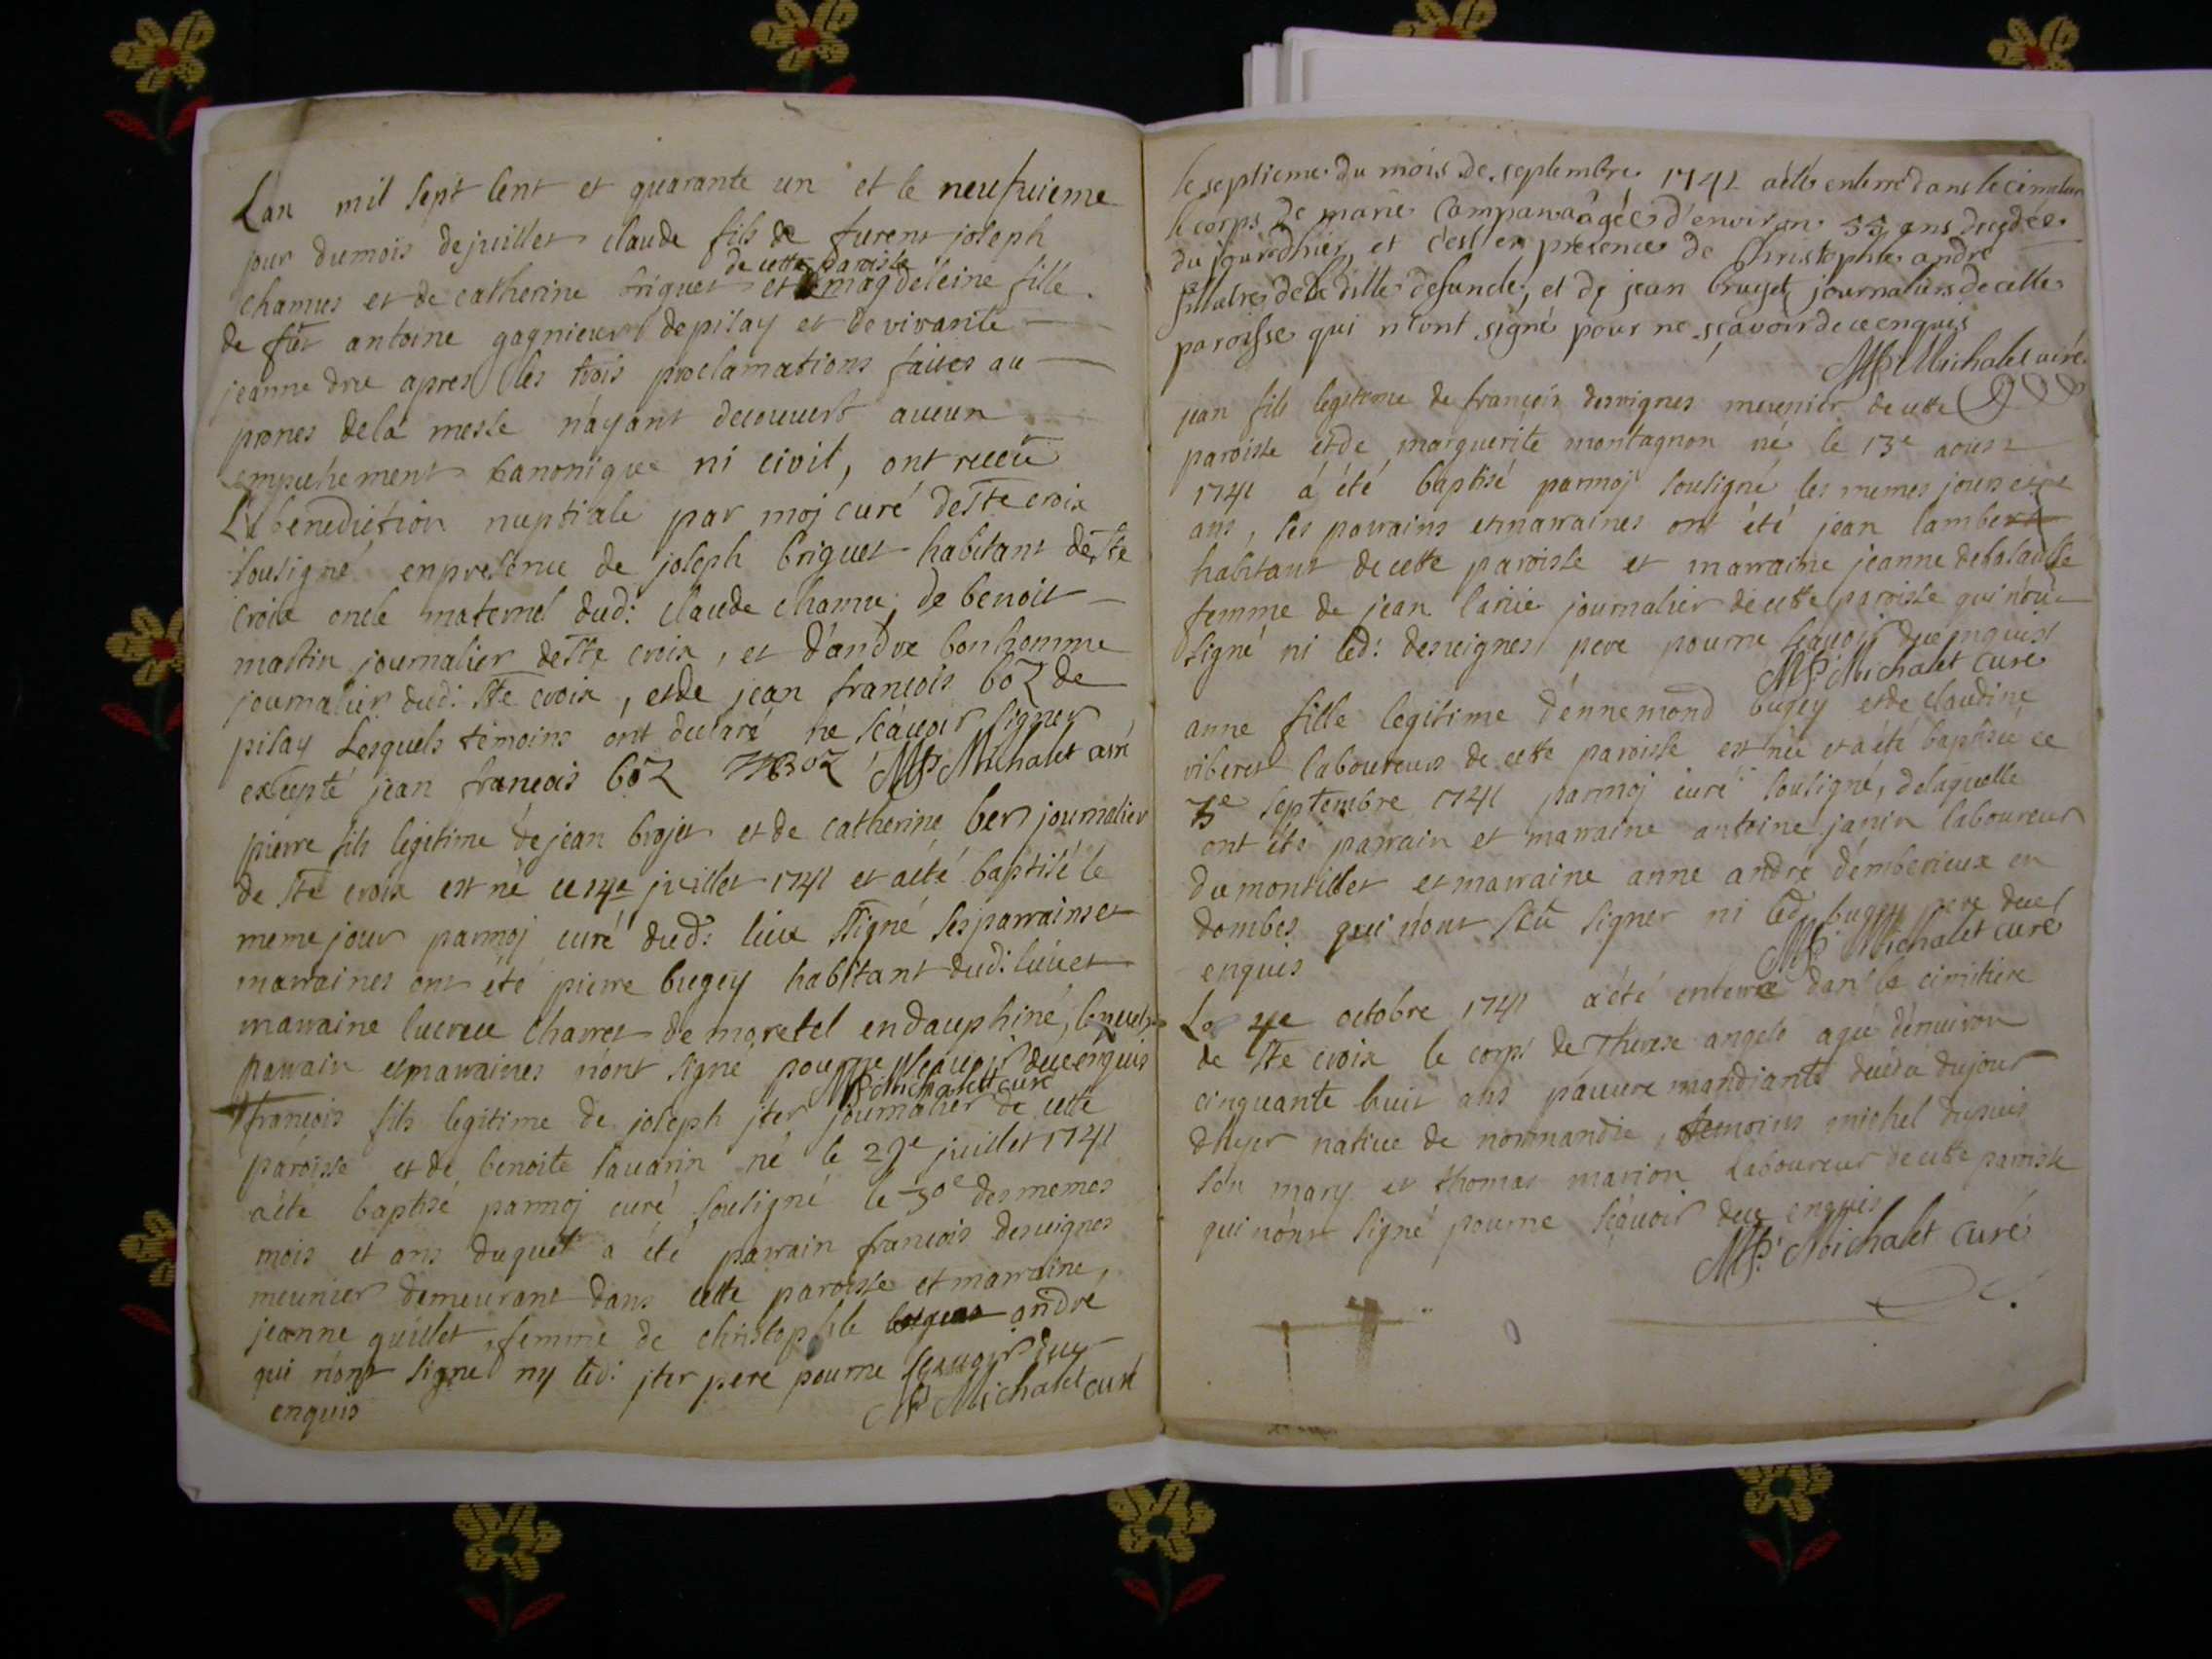 Lan mil sept cent et quarante un et le neufuieme
jour dumois dejuillet claude fils de furent joseph
de cette paroisse
chamus et de catherine briguet et magdeleine fille
de fût antoine gagnieur depisay et devivante
jeanne dru apres les trois proclamations faites au
prones dela messe n'ayant decouvert aucun
empechement canonique ni civil, ont receu
La benediction nuptiale par moj curé deste croix
sousigné enpresence de joseph briguet habitant deste
croix oncle maternel dud: claude chamu, de benoit
martin journalier deste croix, et d'andre bonhomme
journalier dud: ste croix, et de jean françois boz de
pisay Lesquels témoins ont declaré ne sçavoir signer
excepté jean françois boz Boz MP Michalet curé
pierre fils legitime de jean brojet et de catherine ber journalier
de ste croix est né ce 14e juillet 1741 et a été baptisé le
meme jour parmoj curé dud: lieu ssigné ses parrains et
marraines ont été pierre bugey habitant dud: lieu et
marraine lucrece charret de moretel endauphiné, lesquels
parrain et marraines n'ont signé pour ne sçauoir dece enquis
MP Michalet curé
françois fils legitime de joseph jter journalier de cette
paroisse et de benoite sauarin né le 29e juillet 1741
a été baptisé parmoj curé sousigné le 30e des memes
mois et ans duquel a été parrain francois desuignes
meunier demeurant dans cette paroisse et marraine,
jeanne guillet femme de christophle andre
qui n'ont signé ny led: jter pere pourne sçauoir dece
enquis MP Michalet curé
le septieme du mois de septembre 1741 a été enterré dans le cimetiere
le corps de marie campana âgée d'environ 55 ans decedée
du jour d'hier, et c'est en presence de Christophle andré
fillatre de la ditte defuncte, et de jean bruyet journaliers de cette
paroisse qui n'ont signé pour ne sçavoir de ce enquis
MP Michalet curé
jean fils legitime de françois desvignes meunier de cette
paroisse et de marguerite montagnon né le 13e aoust
1741 á été baptisé parmoj sousigné les memes jour et
ans, ses parrains et marraines ont été jean lambert
habitant de cette paroisse et marraine jeanne
femme de jean journalier de cette paroisse qui n'ont
signé ni led: desueignes pere pourne sçauoir dece enquis
MP Michalet curé
anne fille legitime d'ennemond bugey et de claudine
viberet laboureurs de cette paroisse est née et a été baptisée ce
septembre 1741 parmoj curé sousigné, delaquelle
ont été parrain et marraine antoine janin laboureur
du montillet et marraine anne andré d'emberieux en
dombes qui n'ont sçu signer ni led: bugey pere dece
enquis MP Michalet curé
Le 4e octobre 1741 a été enterré dans le cimitiere
de ste croix le corps de Therese angelo agée d'enuiron
cinquante huit ans pauure mandiante decedée dujour
d'hyer natiue de normandie, temoins michel dupuis
son mary et thomas marion Laboureur de cette paroisse
qui n'ont signé pourne sçauoir dece enquis
MP Michalet curé